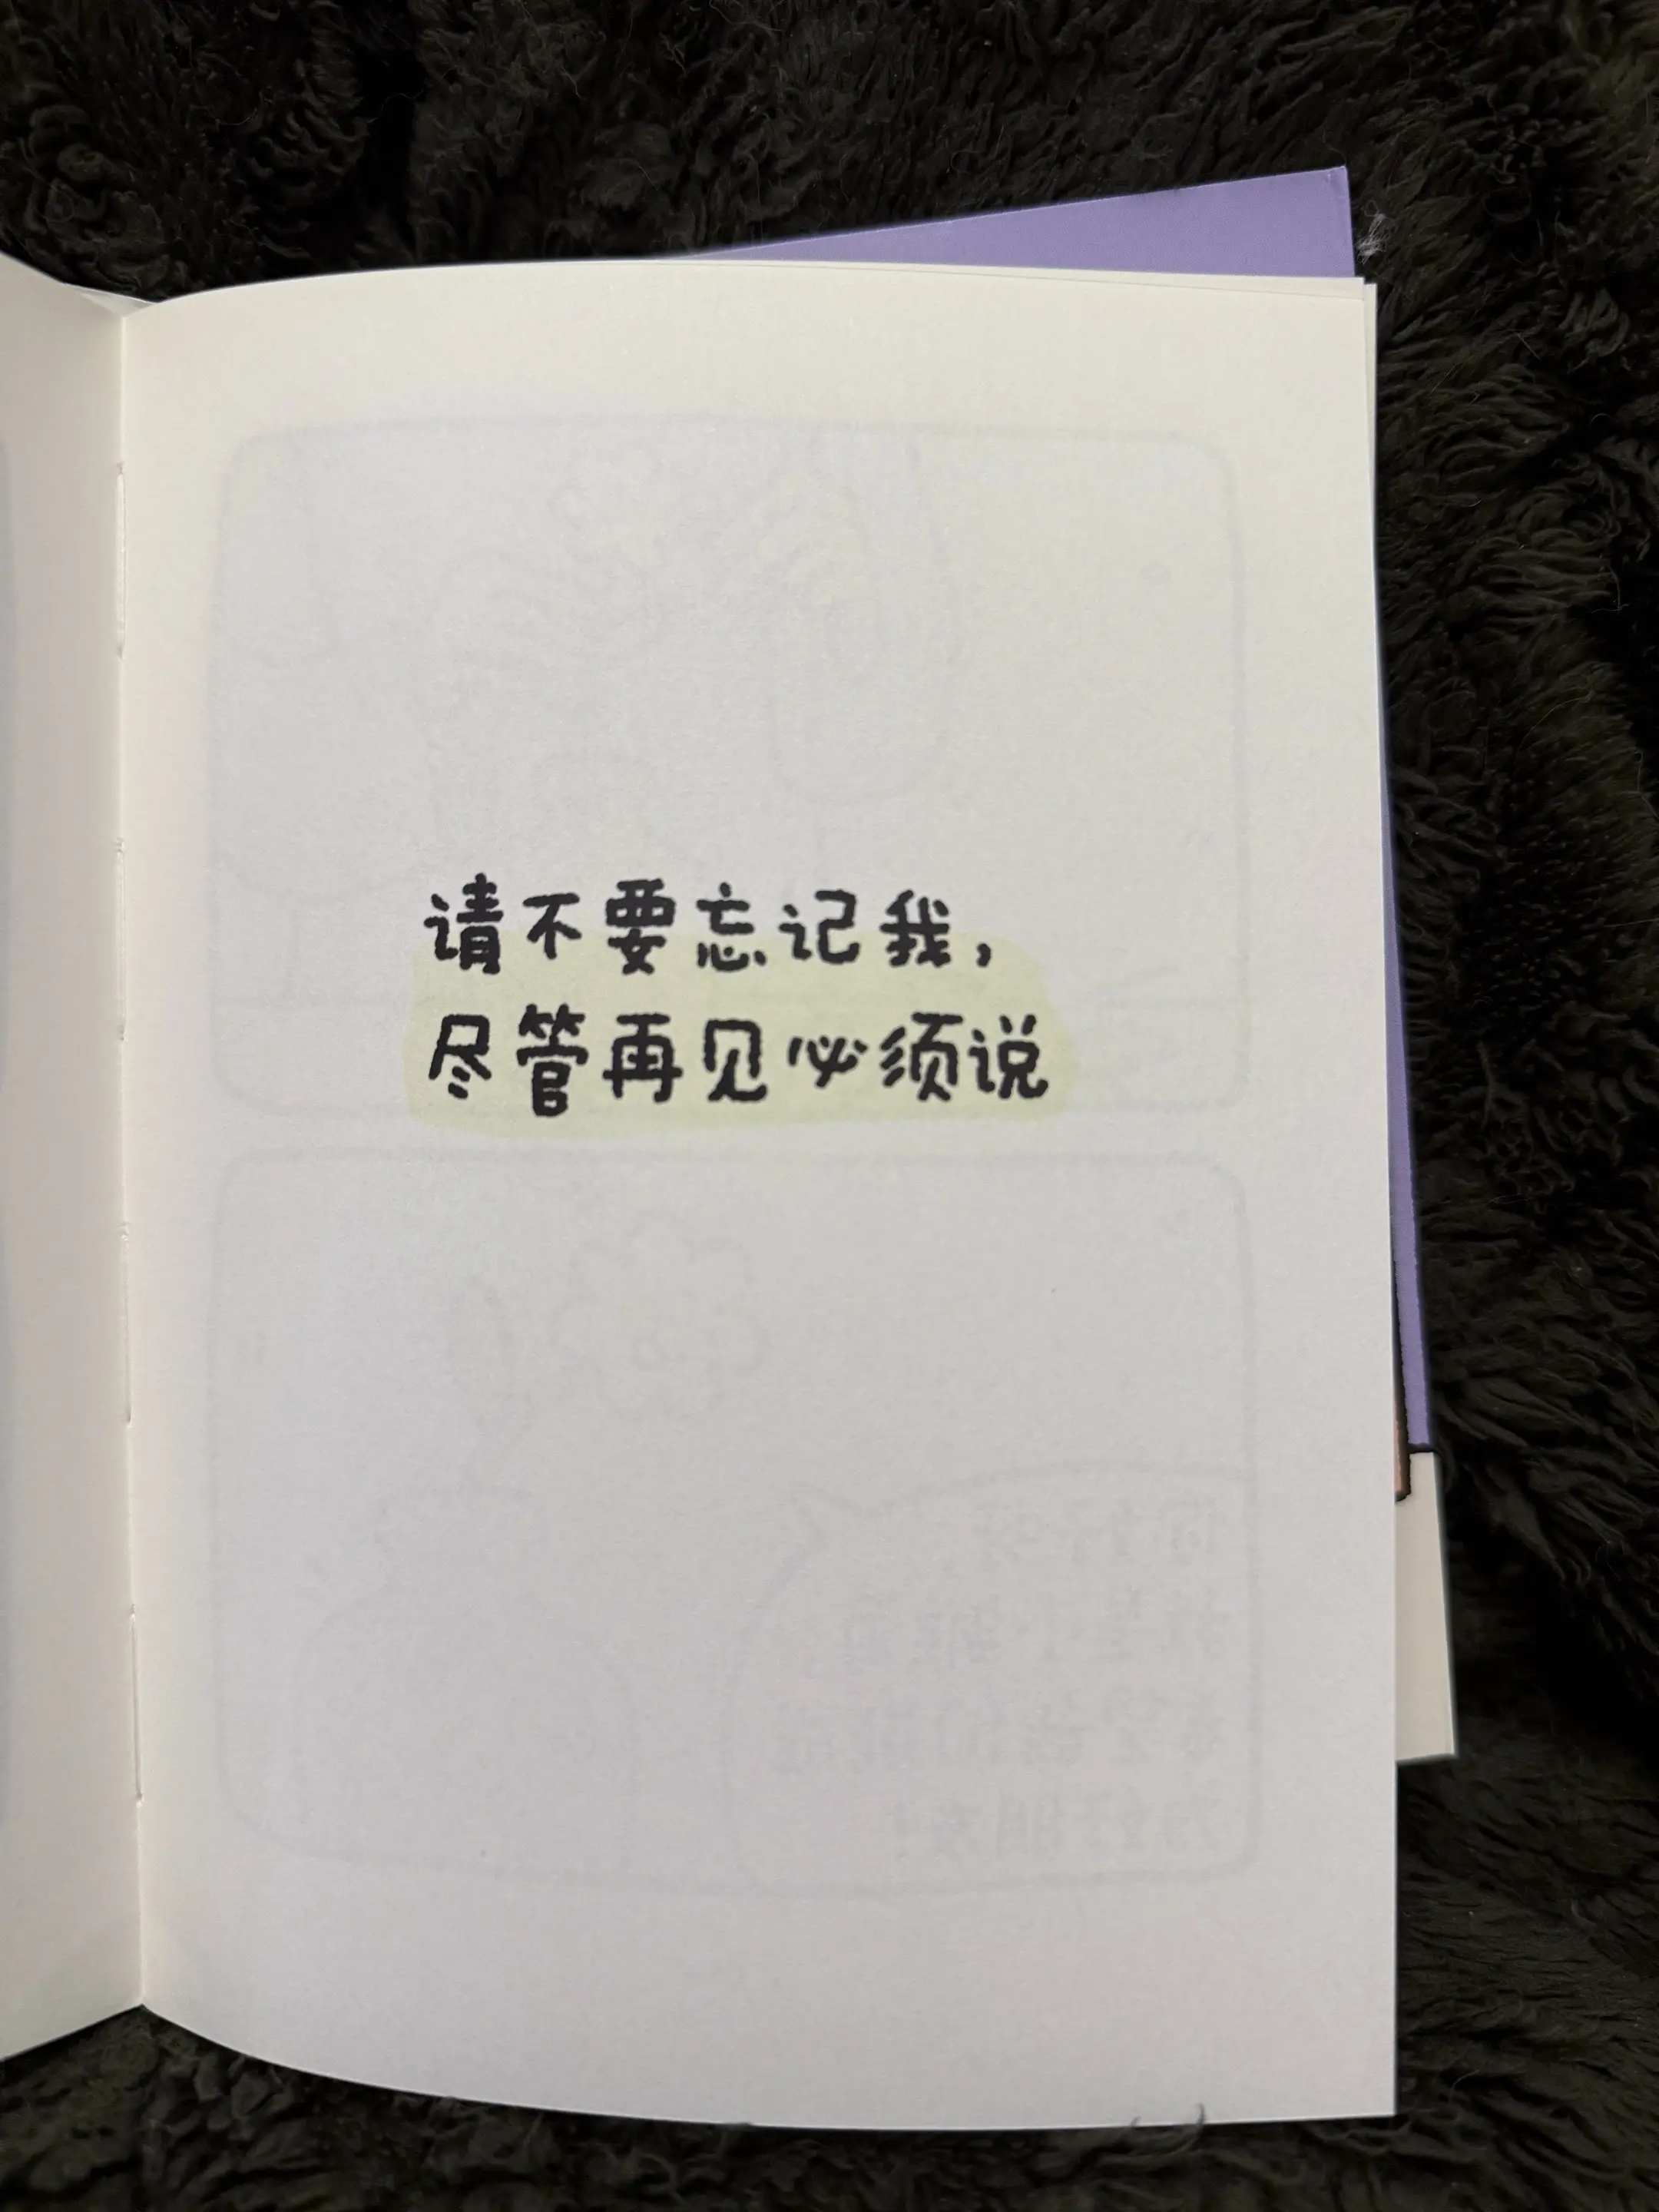 请不要忘记我，
尽管再见必须说